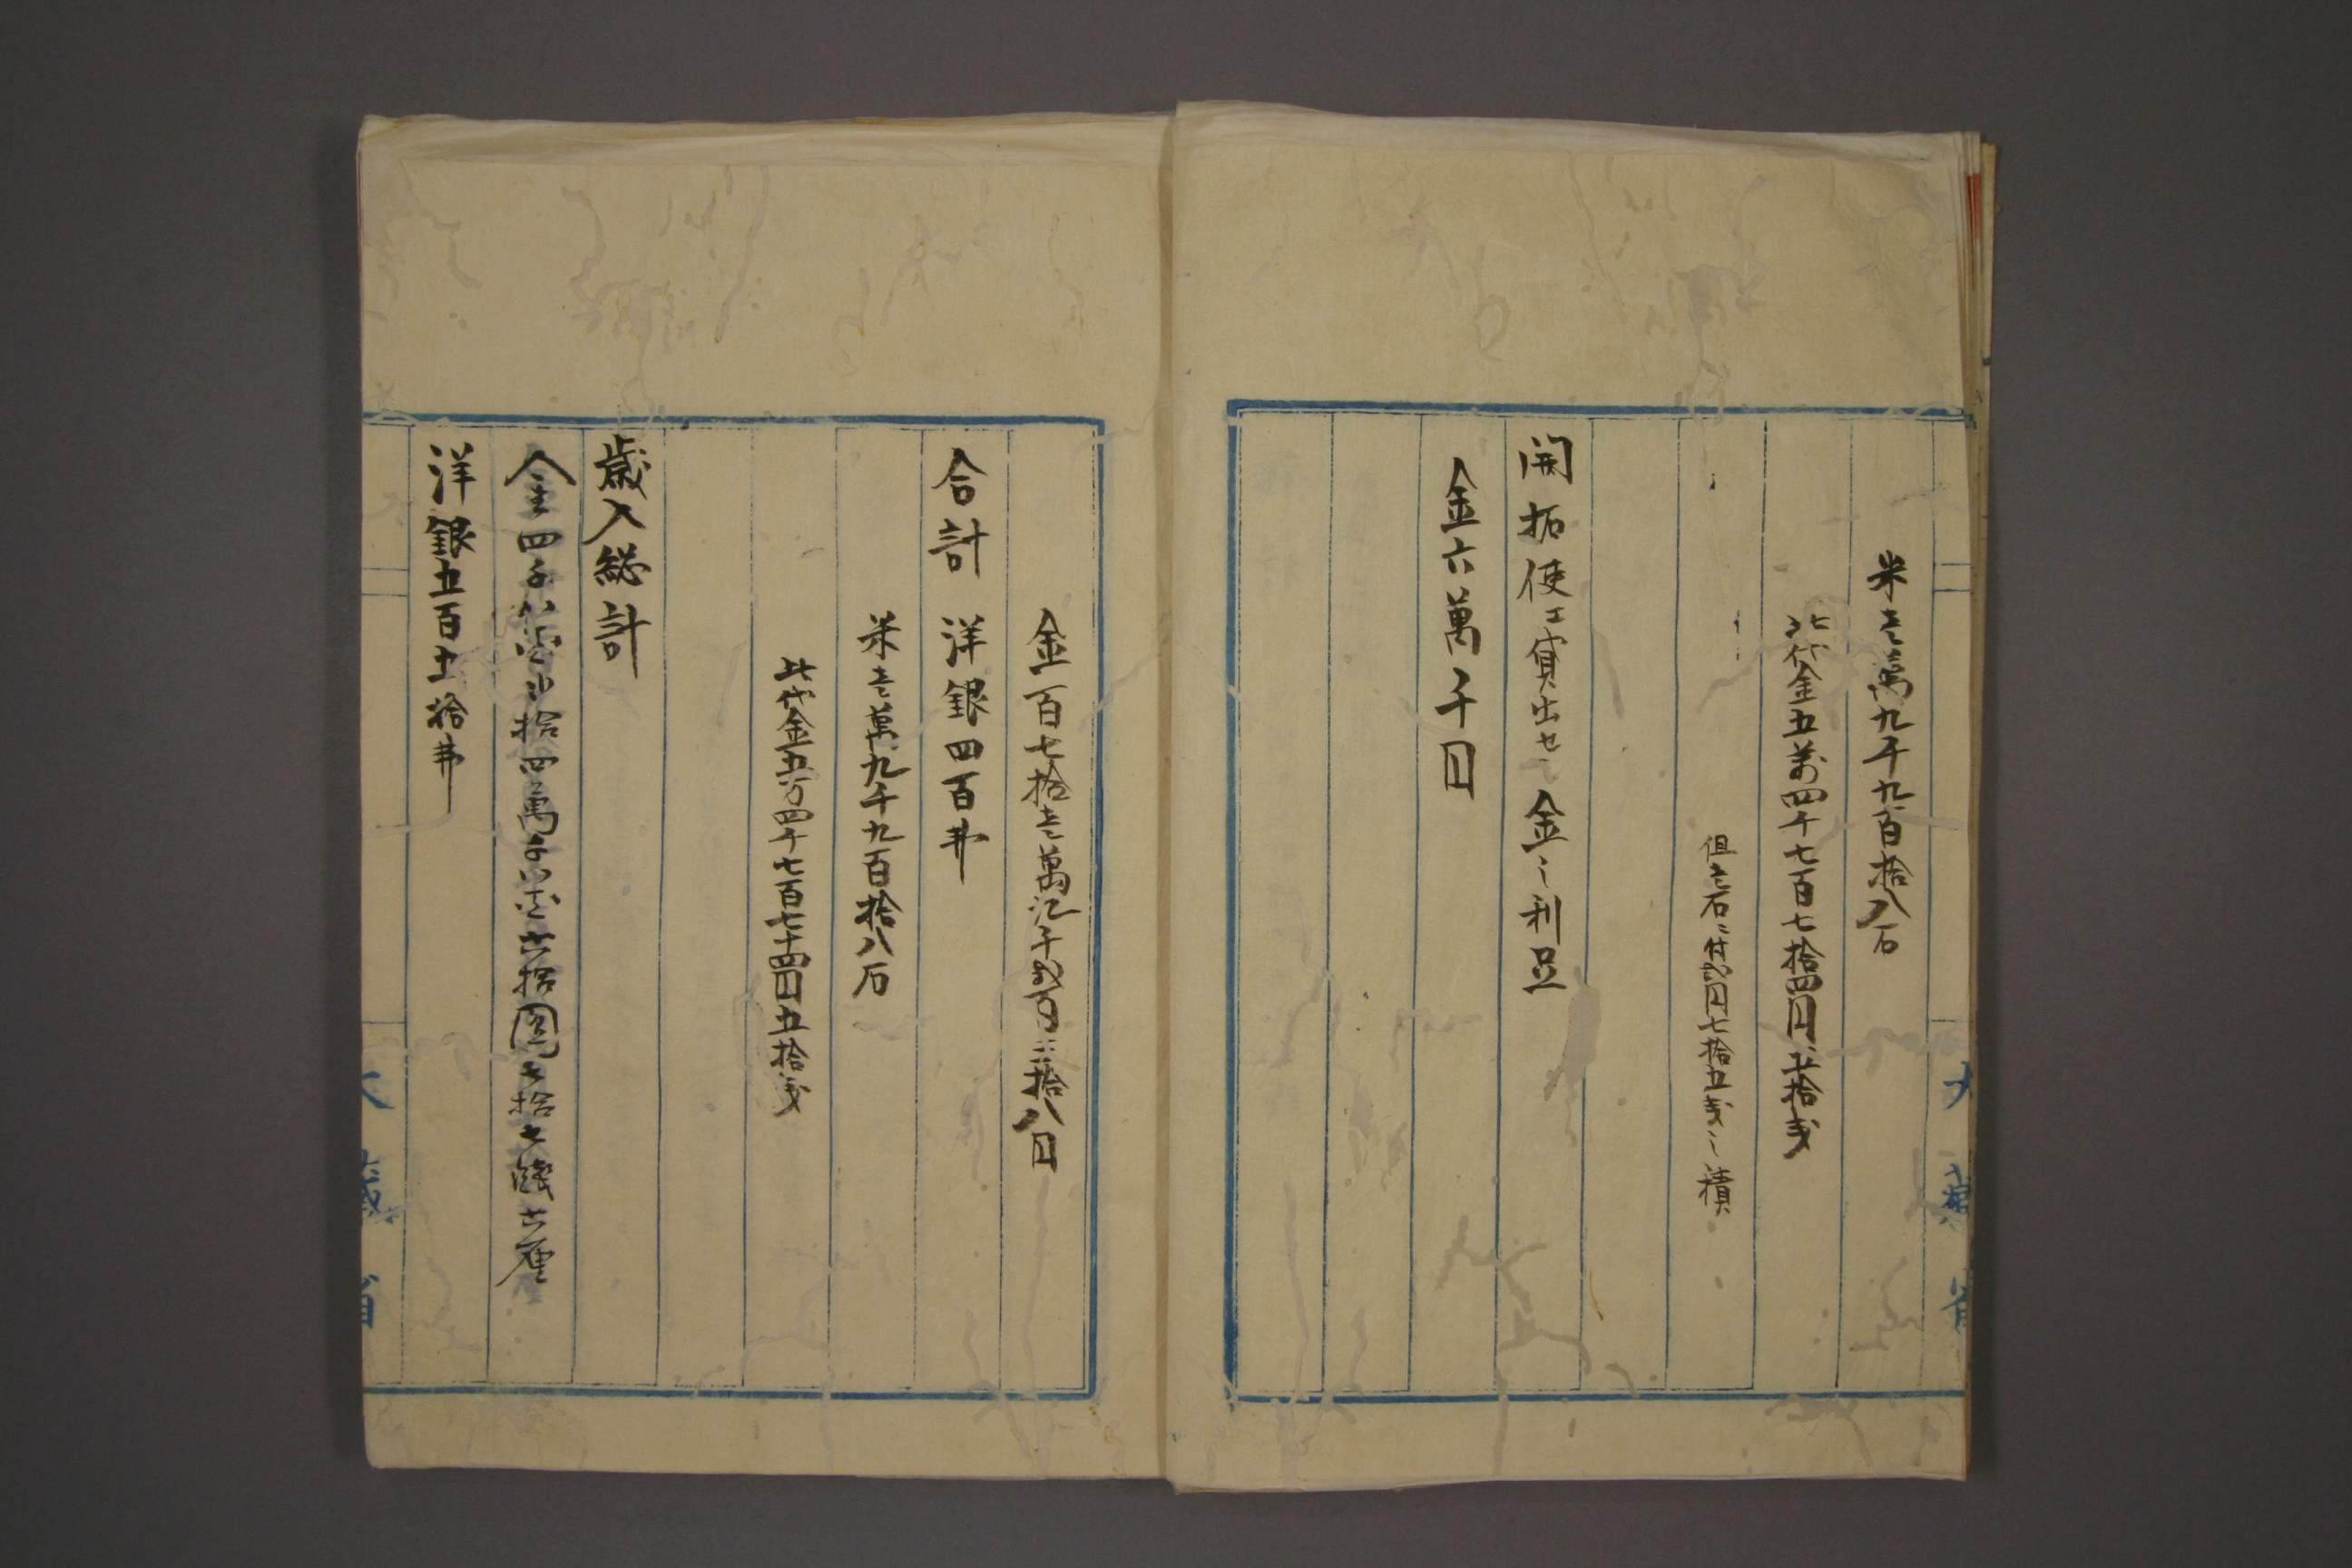 米壱萬九千九百拾八石
此代金五萬四千七百七拾四円五拾銭
但壱石ニ付弐円七拾五銭之積
開拓使エ貸出セシ金之利足
金六萬千円
大藏省
金百七拾壱萬
千
百三拾八円
合計 洋銀四百弗
米壱萬九千九百拾八石
此代金五万四千七百七十四円五拾銭
歳入総計
金四千
拾四萬千
六拾圓七拾七錢六厘
洋銀五百五拾弗
大藏省